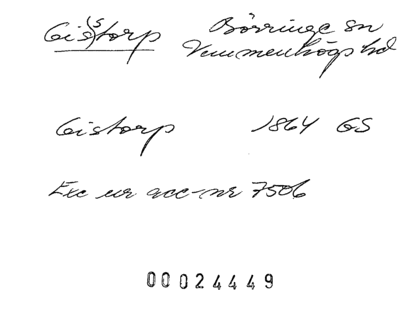 Gis(s)torp Börringe sn
Vemmenhögs hd
Gistorp 1864 GS
Exc ur acc-nr 7506
00024449